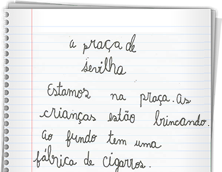 A praça de
Sevilha
Estamos na praça. As
crianças estão brincando.
Ao fundo tem uma
fábrica de cigarros.